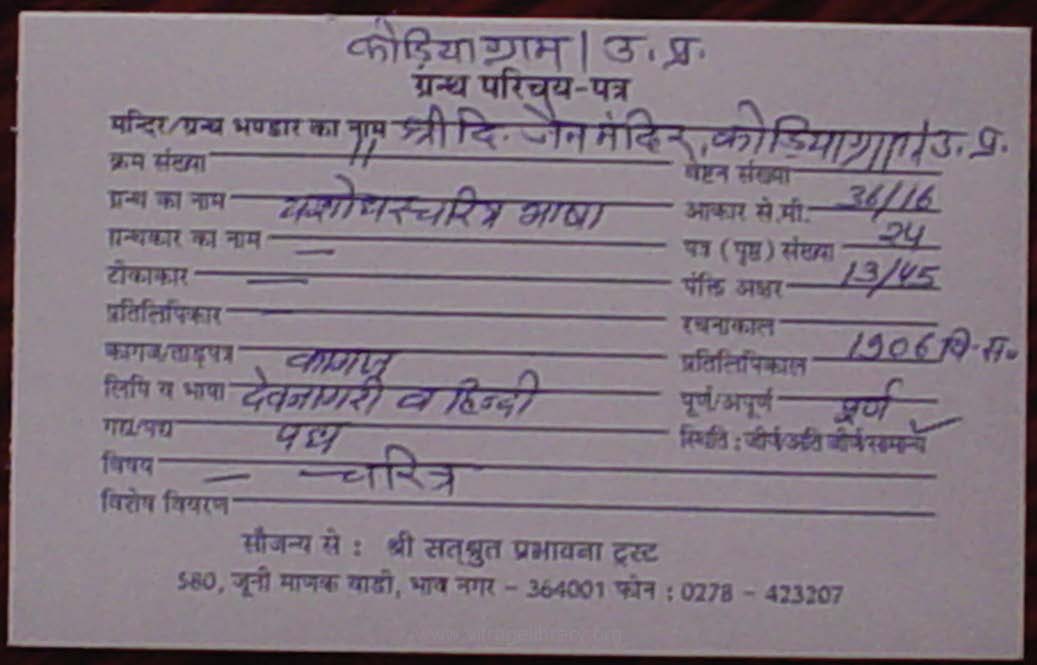 कोड़िया ग्राम / उ. प्र.
ग्रन्थ परिचय-पत्र
मन्दिर/ग्रन्थ भण्डार का नाम श्री दि. जैन मंदिर, कोड़ियाग्राम / उ. प्र.
क्रम संख्या 11 वेष्टन संख्या
ग्रन्थ का नाम यशोधरचरित्र भाषा आकार से.मी. 36/16
ग्रन्थकार का नाम — पत्र (पृष्ठ) संख्या 24
टीकाकार — पंक्ति अक्षर 13/45
प्रतिलिपिकार — रचनाकाल
कागज/ताड़पत्र कागज प्रतिलिपिकाल 1906 वि.सं.
लिपि व भाषा देवनागरी व हिन्दी पूर्ण/अपूर्ण पूर्ण
गद्य/पद्य पद्य स्थिति : जीर्ण/अति जीर्ण/सामान्य ✓
विषय — चरित्र
विशेष विवरण
सौजन्य से : श्री सत्श्रुत प्रभावना ट्रस्ट
580, जूनी माणक वाडी, भाव नगर - 364001 फोन : 0278 - 423207